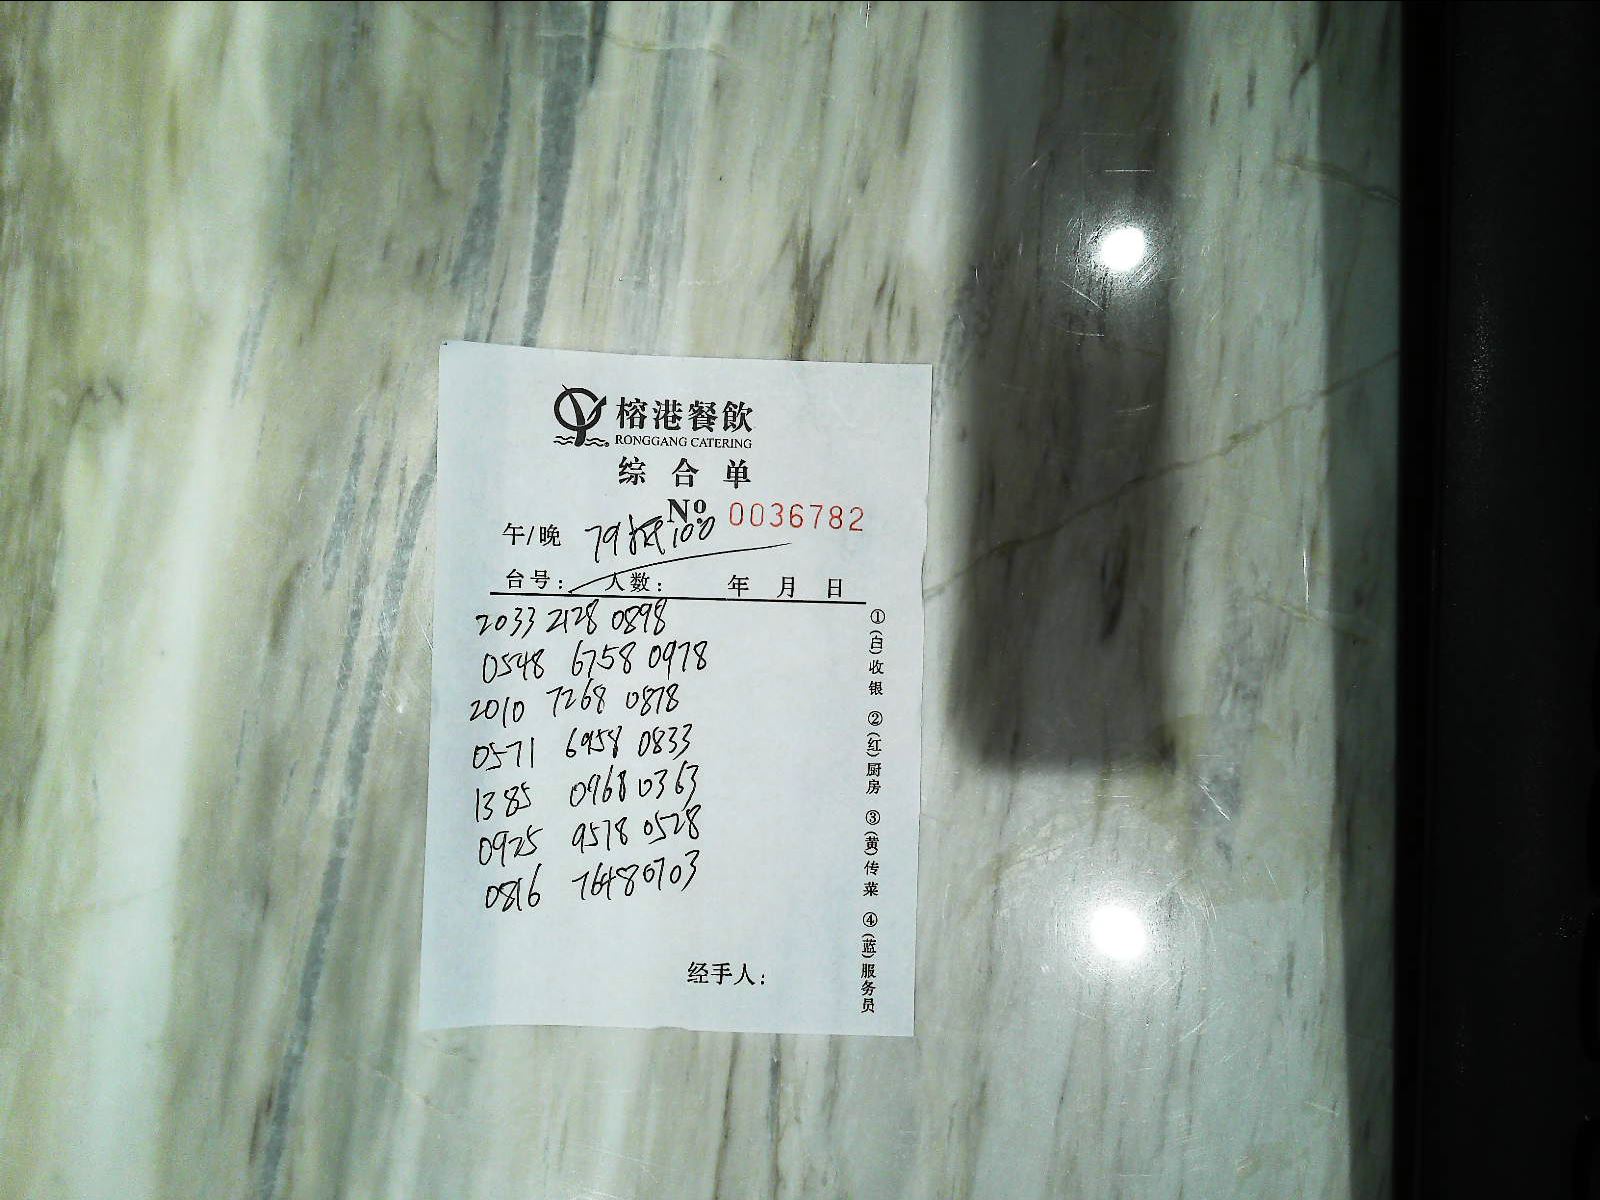 榕港餐飲
RONGGANG CATERING
综合单
№ 0036782
午/晚 79抵100
台号: 人数: 年 月 日
2033 2128 0898
0548 6758 0978
2010 7268 0878
0571 6958 0833
1385 0968 0363
0925 9578 0528
0816 7648 0703
经手人:
①(白)收银 ②(红)厨房 ③(黄)传菜 ④(蓝)服务员